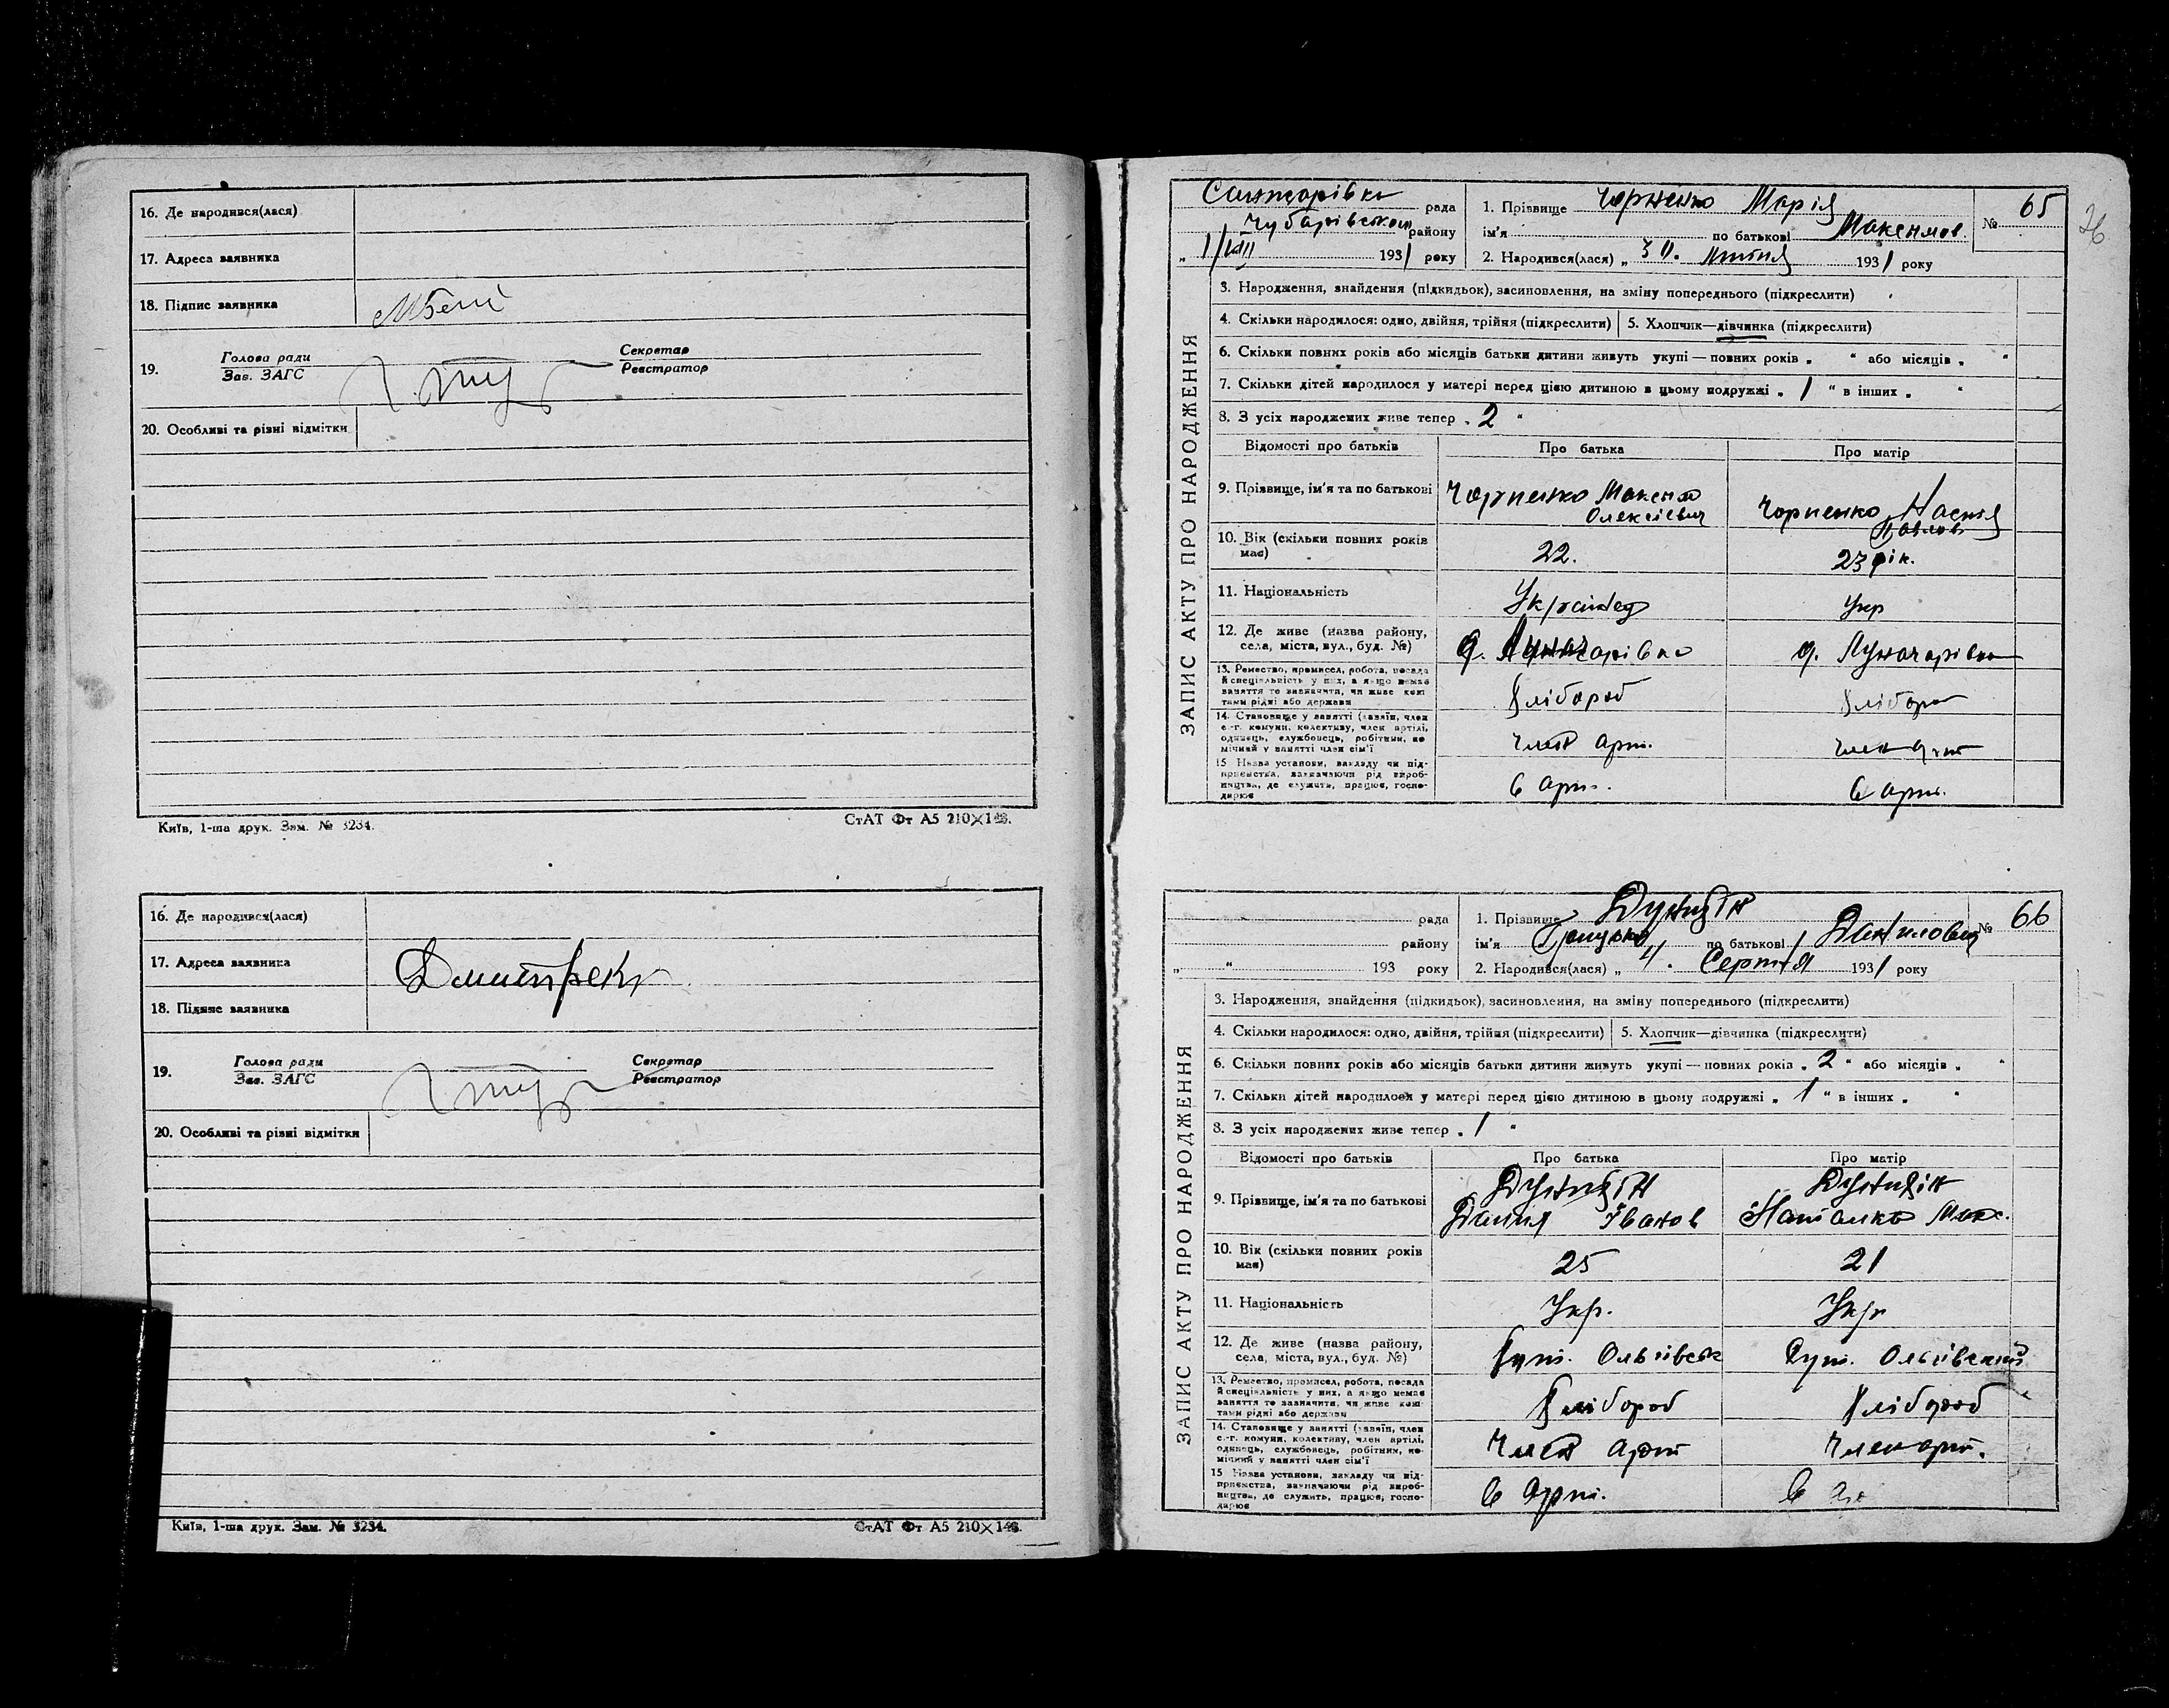 16. Де народився(лася)
17. Адреса заявника
18. Підпис заявника
19. Голова ради Секретар
Зав. ЗАГС Реєстратор
20. Особливі та різні відмітки
Київ, 1-ша друк. Зам. № 3234. СтАТ Фт А5 210×148.
16. Де народився(лася)
17. Адреса заявника
18. Підпис заявника
19. Голова ради Секретар
Зав. ЗАГС Реєстратор
20. Особливі та різні відмітки
Київ, 1-ша друк. Зам. № 3234. СтАТ Фт А5 210×148.
ЗАПИС АКТУ ПРО НАРОДЖЕННЯ
рада 1. Прізвище Чорненко Марія № 65
Чубарівського району ім'я по батькові Максимов.
1/VIII 1931 року 2. Народився(лася) „ 30. 1931 року
3. Народження, знайдення (підкидьок), засиновлення, на зміну попереднього (підкреслити)
4. Скільки народилося: одно, двійня, трійня (підкреслити) 5. Хлопчик—дівчинка (підкреслити)
6. Скільки повних років або місяців батьки дитини живуть укупі — повних років „ “ або місяців „ “
7. Скільки дітей народилося у матері перед цією дитиною в цьому подружжі „ 1 “ в інших „ “
8. З усіх народжених живе тепер „ 2 “
Відомості про батьків Про батька Про матір
9. Прізвище, ім'я та по батькові Чорненко Максим Олексієвич Чорненко Павлов
10. Вік (скільки повних років має) 22. 23 рік.
11. Національність Українец Укр
12. Де живе (назва району, села, міста, вул., буд. №) Луначарівка Луначарівка
13. Ремество, промисел, робота, посада й спеціяльність у них, а якщо немає заняття то зазначити, чи живе коштами рідні або держави хлібороб хлібороб
14. Становище у занятті (хазяїн, член с.-г. комуни, колективу, член артілі, одинець, службовець, робітник, помічний у занятті член сім'ї член арт. член арт
15 Назва установи, закладу чи підприємства, зазначаючи рід виробництва, де служить, працює, господарює в арт. в арт.
ЗАПИС АКТУ ПРО НАРОДЖЕННЯ
рада 1. Прізвище № 66
району ім'я по батькові Данилович
„ “ 193 року 2. Народився(лася) „ 4. Серпня 1931 року
3. Народження, знайдення (підкидьок), засиновлення, на зміну попереднього (підкреслити)
4. Скільки народилося: одно, двійня, трійня (підкреслити) 5. Хлопчик—дівчинка (підкреслити)
6. Скільки повних років або місяців батьки дитини живуть укупі — повних років „ 2 “ або місяців „ “
7. Скільки дітей народилося у матері перед цією дитиною в цьому подружжі „ 1 “ в інших „ “
8. З усіх народжених живе тепер „ 1 “
Відомості про батьків Про батька Про матір
9. Прізвище, ім'я та по батькові Данил Іванов Наталка Макс.
10. Вік (скільки повних років має) 25 21
11. Національність Укр. Укр
12. Де живе (назва району, села, міста, вул., буд. №) хут. Ольгівськ хут. Ольгівський
13. Ремество, промисел, робота, посада й спеціяльність у них, а якщо немає заняття то зазначити, чи живе коштами рідні або держави хлібороб хлібороб
14. Становище у занятті (хазяїн, член с.-г. комуни, колективу, член артілі, одинець, службовець, робітник, помічний у занятті член сім'ї Член арт Член арт.
15 Назва установи, закладу чи підприємства, зазначаючи рід виробництва, де служить, працює, господарює в арт. в